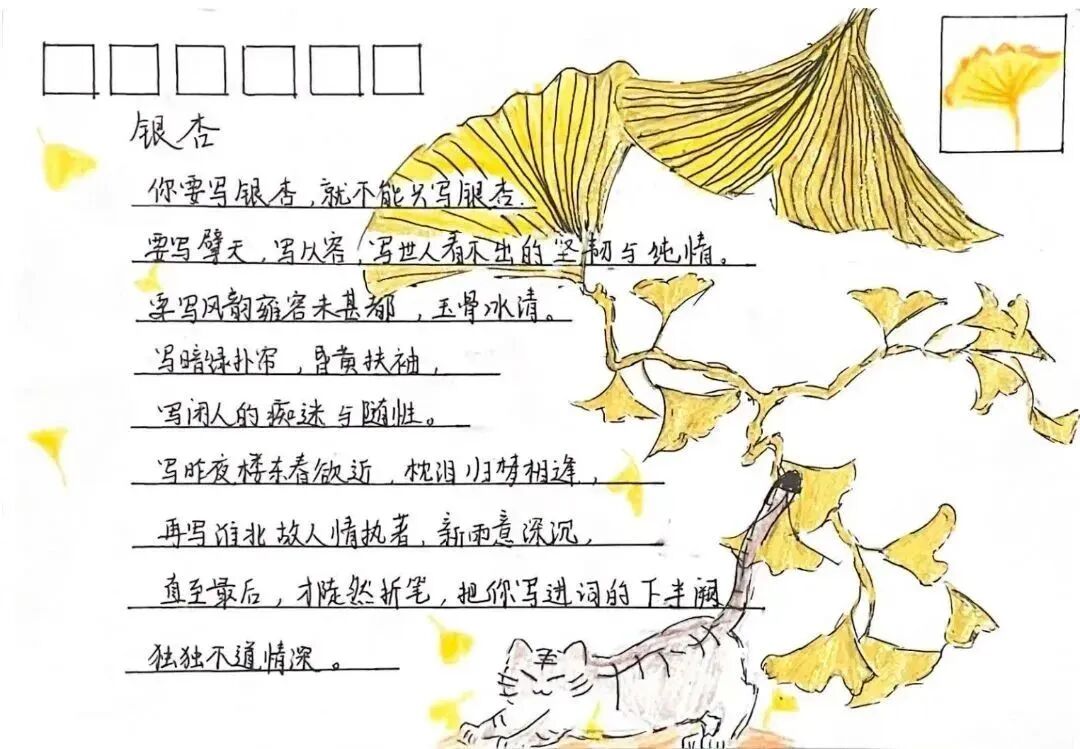 银杏
你要写银杏，就不能只写银杏.
要写擘天，写从容，写世人看不出的坚韧与纯情。
要写风韵雍容未甚都，玉骨冰清。
写暗绿扑帘，昏黄扶袖，
写闭人的痴迷与随性。
写昨夜楼东春欲近，枕泪归梦相逢，
再写淮北故人情执著，新雨意深沉，
直至最后，才陡然折笔，把你写进词的下半阙
独独不道情深。